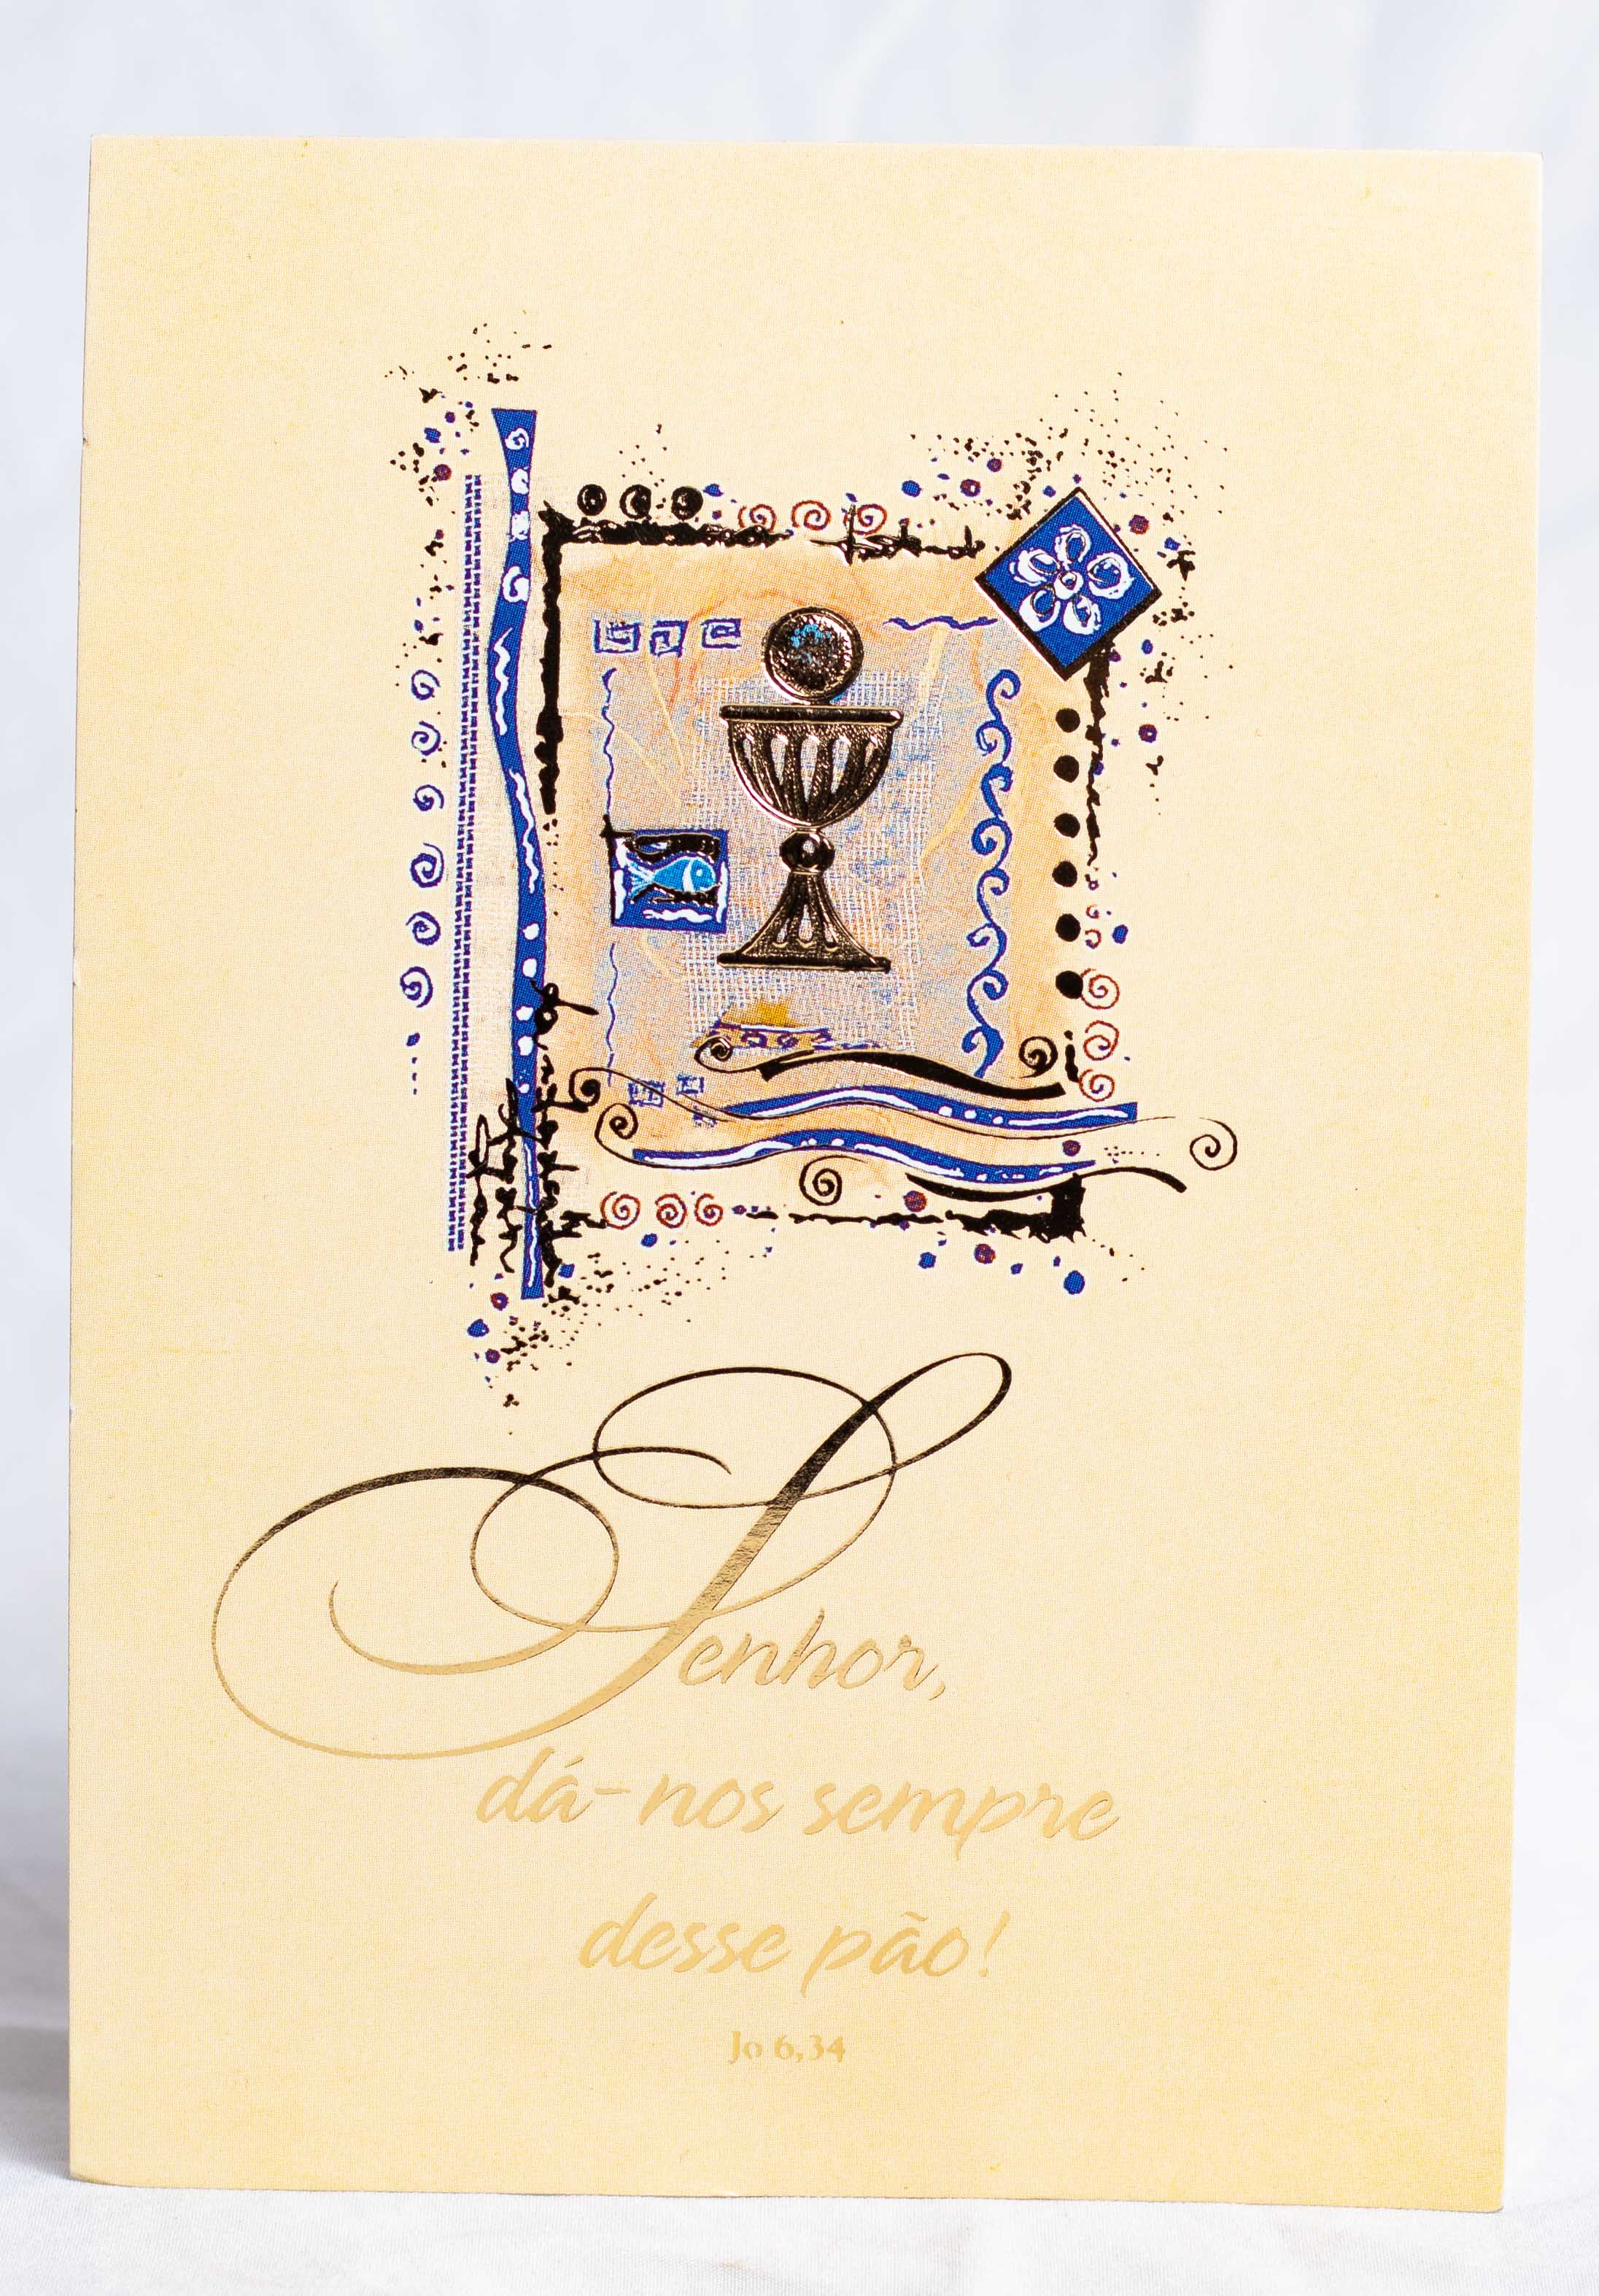 Senhor,
dá-nos sempre
desse pão!
Jo 6,34